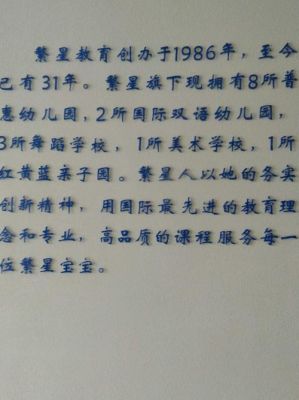 繁星教育创办于1986年，至今
已有31年。繁星旗下现拥有8所普
惠幼儿园，2所国际双语幼儿园，
3所舞蹈学校，1所美术学校，1所
红黄蓝亲子园。繁星人以她的务实
创新精神，用国际最先进的教育理
念和专业，高品质的课程服务每一
位繁星宝宝。